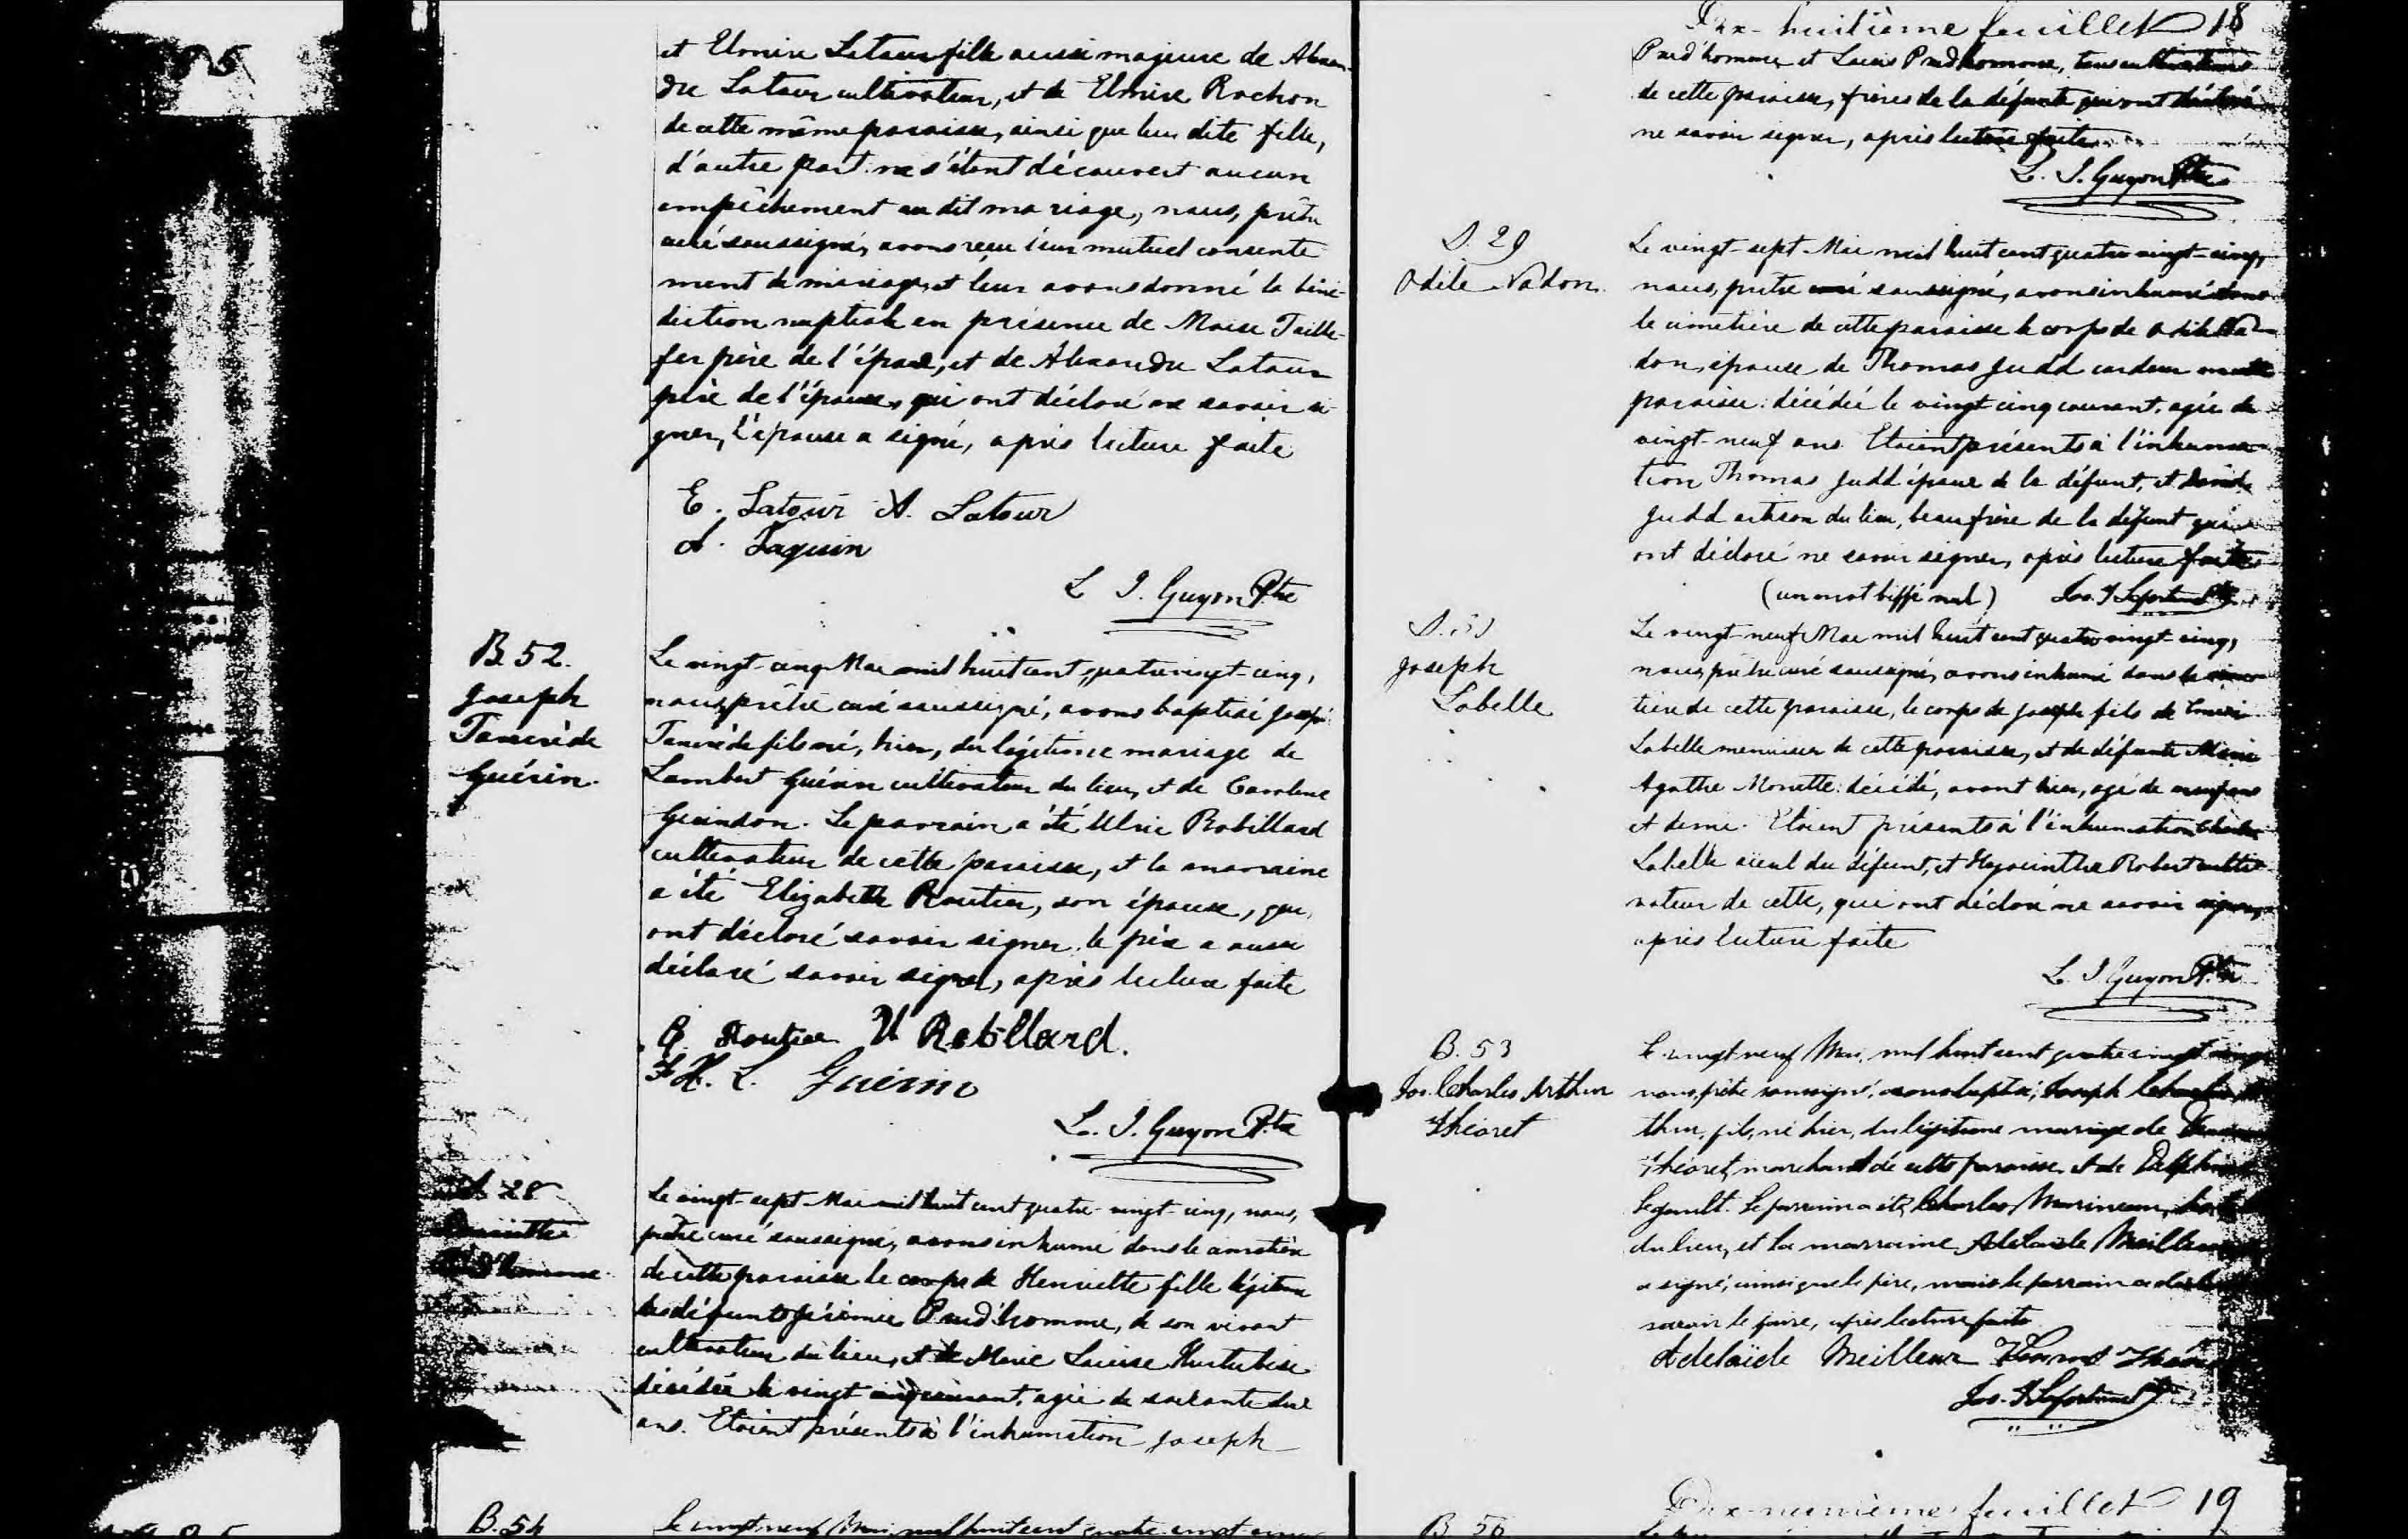 et Elmire Latour fille aussi majeure de Alexan-
dre Latour cultivateur, et de Elmire Rochon
de cette même paroisse, ainsi que leur dite fille,
d'autre part ne s'étant découvert aucun
empêchement au dit mariage, nous, prêtre
curé soussigné, avons reçu leur mutuel consente
ment de mariage et leur avons donné la béné-
diction nuptiale en présence de Moise Taille-
fer père de l'époux, et de Alexandre Latour
père de l'épouse, qui ont déclaré ne savoir si-
gner, l'épouse a signé, après lecture faite
E. Latour A. Latour
A. Jaquin
L. I. Guyon Ptre
B. 52.
Joseph
Tancrède
Guérin.
Le vingt-cinq Mai mil huit cent quatre vingt-cinq,
nous, prêtre curé soussigné, avons baptisé Joseph
Tancrède fils né, hier, du légitime mariage de
Lambert Guérin cultivateur du lieu, et de Caroline
Guindon. Le parrain a été Ulric Robillard
cultivateur de cette paroisse, et la marraine
a été Elizabeth Routier, son épouse, qui
ont déclaré savoir signer. le père a aussi
déclaré savoir signer, après lecture faite
Routier U Robillard.
L. Guérin
L. I. Guyon Ptre
28
Le vingt-sept Mai mil huit cent quatre-vingt-cinq, nous,
prêtre curé soussigné, avons inhumé dans le cimetière
de cette paroisse le corps de Henriette fille légitime
des défunts Jérémie Prud'homme, de son vivant
cultivateur du lieu, et de Marie Louise Hurtubise
décédée le vingt cinq courant, agée de soixante
ans. Etaient présents à l'inhumation Joseph
B. 54
Le vingt neuf Mai mil huit cent quatre vingt cinq
Dix-huitième feuillet 18
Prud'homme et Louis Prud'homme, tous cultivateurs
de cette paroisse, frères de la défunte qui ont déclaré
ne savoir signer, après lecture faite
L. I. Guyon Ptre
S. 29
Odile Nadon.
Le vingt-sept Mai mil huit cent quatre vingt-cinq,
nous, prêtre curé soussigné, avons inhumé dans
le cimetière de cette paroisse le corps de Odile Na-
don, épouse de Thomas Judd cardeur
paroisse: décédée le vingt cinq courant, agée de
vingt-neuf ans. Etaient présents à l'inhuma-
tion Thomas Judd époux de la défunt, et David
Judd artisan du lieu, beau frère de la défunt qui
ont déclaré ne savoir signer, après lecture faite
(un mot biffé nul)
S.
Joseph
Labelle
Le vingt-neuf Mai mil huit cent quatre vingt-cinq,
nous, prêtre curé soussigné, avons inhumé dans le cime-
tière de cette paroisse, le corps de Joseph fils de
Labelle menuisier de cette paroisse, et de défunte Marie
Agathe Monette: décédé, avant hier, agé de
et demi. Etaient présents à l'inhumation Charles
Labelle aïeul du défunt, et Hyacinthe Robert culti-
vateur de cette, qui ont déclaré ne savoir signer,
après lecture faite
L. I. Guyon Ptre
B. 53
Jos. Charles Arthur
Théoret
Le vingt neuf Mai, mil huit cent quatre vingt cinq
nous, prêtre soussigné, avons baptisé, Joseph Charles Ar
thur, fils, né hier, du légitime mariage de
Théoret, marchand de cette paroisse et de Delphine
Legault. Le parrain a été Charles Marineau,
du lieu, et la marraine Adelaide Meilleur
a signé, ainsi que le père, mais le parrain a déclaré
savoir le faire, après lecture faite
Adelaïde Meilleur
Dix-neuvième feuillet 19
B. 56